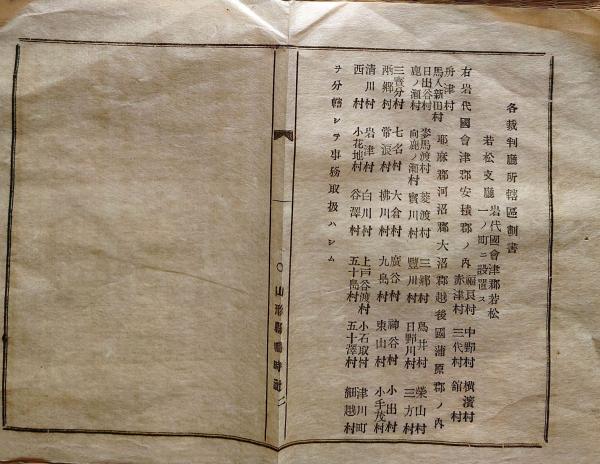 各裁判廳所轄區劃書
若松支廳 岩代國會津郡若松
一ノ町ニ設置ス
右岩代國會津郡安積郡ノ內 福良村 中野村 橫濱村
舟津村 赤津村 三代村 舘村
馬入新田村 耶麻郡河沼郡大沼郡越後國蒲原郡ノ內
日出谷村 麥馬渡村 菱渡村 三鄕村 鳥井村 榮山村
鹿ノ瀨村 向鹿ノ瀨村 實川村 豐川村 日野川村 三方村
三寶分村 七名村 大倉村 廣谷村 神谷村 小出村
兩鄕村 常浪村 拂川村 九島村 東山村 小手茂村
淸川村 岩津村 白川村 上戶谷渡村 小石取村 津川町
西村 小花地村 谷澤村 五十島村 五十澤村 細越村
ヲ分轄シテ事務取扱ハシム